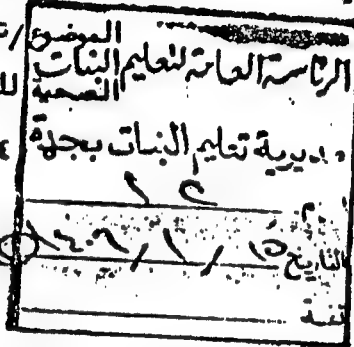 الموضوع/
الرئاسة العامة لتعليم البنات
الصحية
مديرية تعليم البنات بجدة
١٢
التاريخ ١٥ / ١ / ١٤٠٩